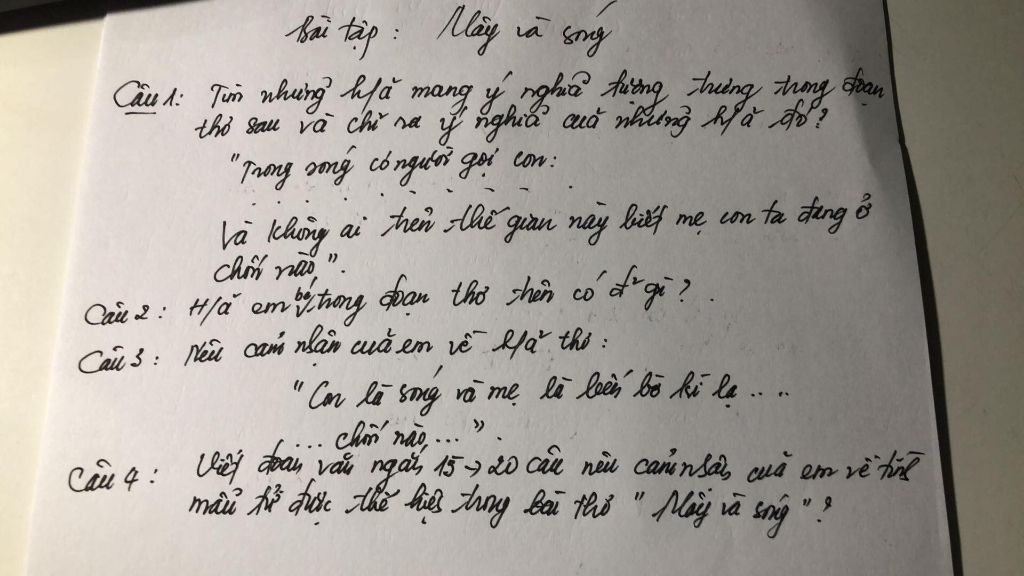 Bài tập : Mây và sóng
Câu 1: Tìm những h/ả mang ý nghĩa tượng trưng trong đoạn
thơ sau và chỉ ra ý nghĩa của những h/ả đó?
"Trong sóng có người gọi con:
. . . . . . . . . .
Và không ai trên thế gian này biết mẹ con ta đang ở
chốn nào".
Câu 2: H/ả em bé trong đoạn thơ trên có đ² gì?.
Câu 3: Nêu cảm nhận của em về h/ả thơ:
"Con là sóng và mẹ là bến bờ kì lạ ....
... chốn nào,...".
Câu 4: Viết đoạn văn ngắn 15→20 câu nêu cảm nhận của em về tình
mẫu tử được thể hiện trong bài thơ "Mây và sóng"?